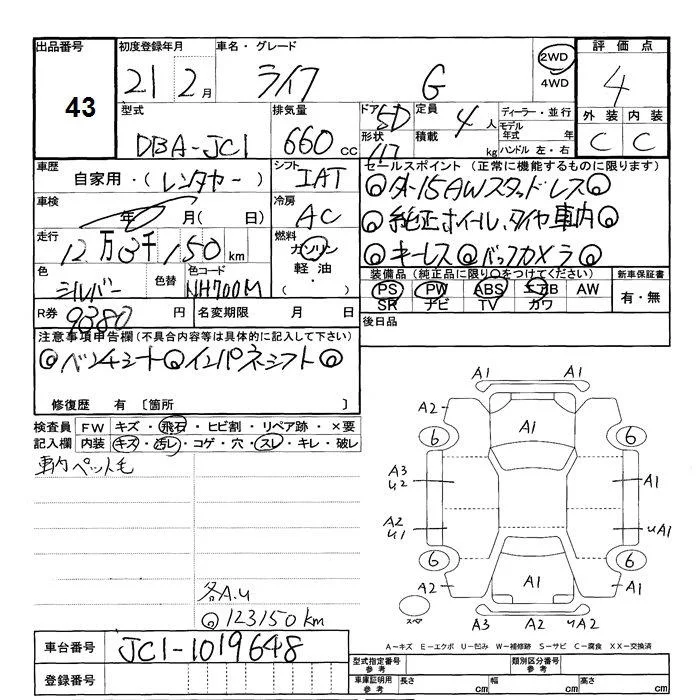 出品番号
43
初度登録年月
21 2月
車名・グレード
ライフ G
2WD
4WD
評価点
4
外装 内装
C C
型式
DBA-JC1
排気量
660cc
ドア 5D
形状
定員 4人
積載 kg
ディーラー・並行
モデル年式 年
ハンドル 左・右
車歴
自家用・(レンタカー)
シフト
IAT
セールスポイント(正常に機能するものに限ります)
◎外-15AWスタッドレス◎
◎純正ホイール、タイヤ車内◎
◎キーレス◎バックカメラ◎
車検
年 月(日)
冷房
AC
走行
12万3千150km
燃料
ガソリン
軽油・
( )
色
シルバー
色替
色コード
NH700M
装備品(純正品に限り○をつけてください)
PS PW ABS エアB AW
SR ナビ TV カワ
新車保証書
有・無
R券
9380円
名変期限 月 日
後日品
注意事項申告欄(不具合内容等は具体的に記入して下さい)
◎ベンチシート◎インパネシフト◎
修復歴 有〔箇所 〕
検査員 FW キズ・飛石・ヒビ割・リペア跡・×要
記入欄 内装 キズ・汚レ・コゲ・穴・スレ・キレ・破レ
車内ペット毛
各A.u
◎123150km
A1 A1
A2 A1
6 6
A3
u2
A1
A2
u1
uA1
6 6
A2 A1 A1
スペア
A3 A2 uA2
A-キズ E-エクボ U-凹み W-補修跡 S-サビ C-腐食 XX-交換済
車台番号
JC1-1019648
登録番号
型式指定番号
参考
類別区分番号
参考
車庫証明用
参考
長さ cm
幅 cm
高さ cm